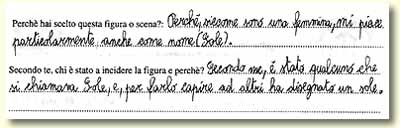 Perchè hai scelto questa figura o scena?: Perchè, siccome sono una femmina, mi piace
particolarmente, anche come nome (Sole).
Secondo te, chi è stato a incidere la figura e perchè? Secondo me, è stato qualcuno che
si chiamava Sole, e, per farlo capire ad altri ha disegnato un sole.